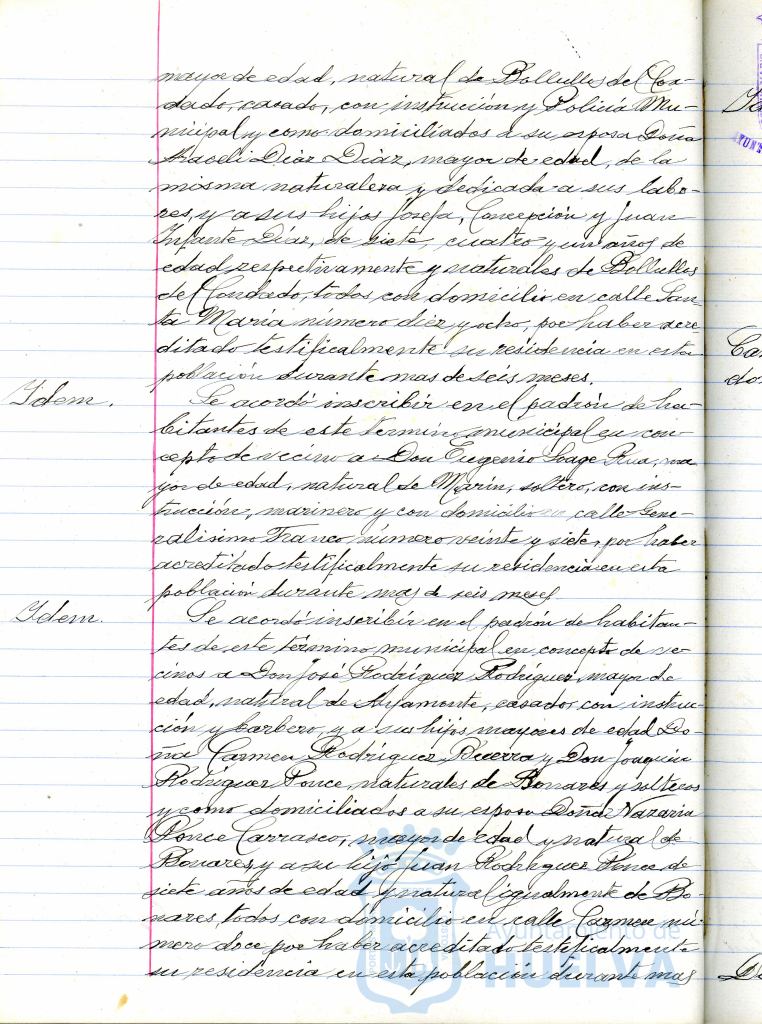 mayor de edad, natural de Bollullos del Con-
dado, casado, con instrucción y Policía Mu-
nicipal y como domiciliados a su esposa Doña
Araceli Díaz Díaz, mayor de edad, de la
misma naturaleza y dedicada a sus labo-
res, y a sus hijos Josefa, Concepción y Juan
Infante Díaz, de siete, cuatro y un años de
edad respectivamente y naturales de Bollullos
del Condado, todos con domicilio en calle San-
ta María número diez y ocho, por haber acre-
ditado testificalmente su residencia en esta
población durante mas de seis meses.
Idem. Se acordó inscribir en el padrón de ha-
bitantes de este término municipal en con-
cepto de vecino a Don Eugenio Lage Rua, ma-
yor de edad, natural de Marín, soltero, con ins-
trucción, marinero y con domicilio en calle Gene-
ralísimo Franco número veinte y siete, por haber
acreditado testificalmente su residencia en esta
población durante mas de seis meses.
Idem. Se acordó inscribir en el padrón de habitan-
tes de este término municipal en concepto de ve-
cinos a Don José Rodríguez Rodríguez, mayor de
edad, natural de Ayamonte, casado, con instruc-
ción y barbero, y a sus hijos mayores de edad Do-
ña Carmen Rodríguez Becerra y Don Joaquín
Rodríguez Ponce, naturales de Bonares y solteros
y como domiciliados a su esposa Doña Nazaria
Ponce Carrasco, mayor de edad y natural de
Bonares, y a su hijo Juan Rodríguez Ponce, de
siete años de edad y natural igualmente de Bo-
nares, todos con domicilio en calle Carmen nú-
mero doce por haber acreditado testificalmente
su residencia en esta población durante mas
Ayuntamiento de
HUELVA